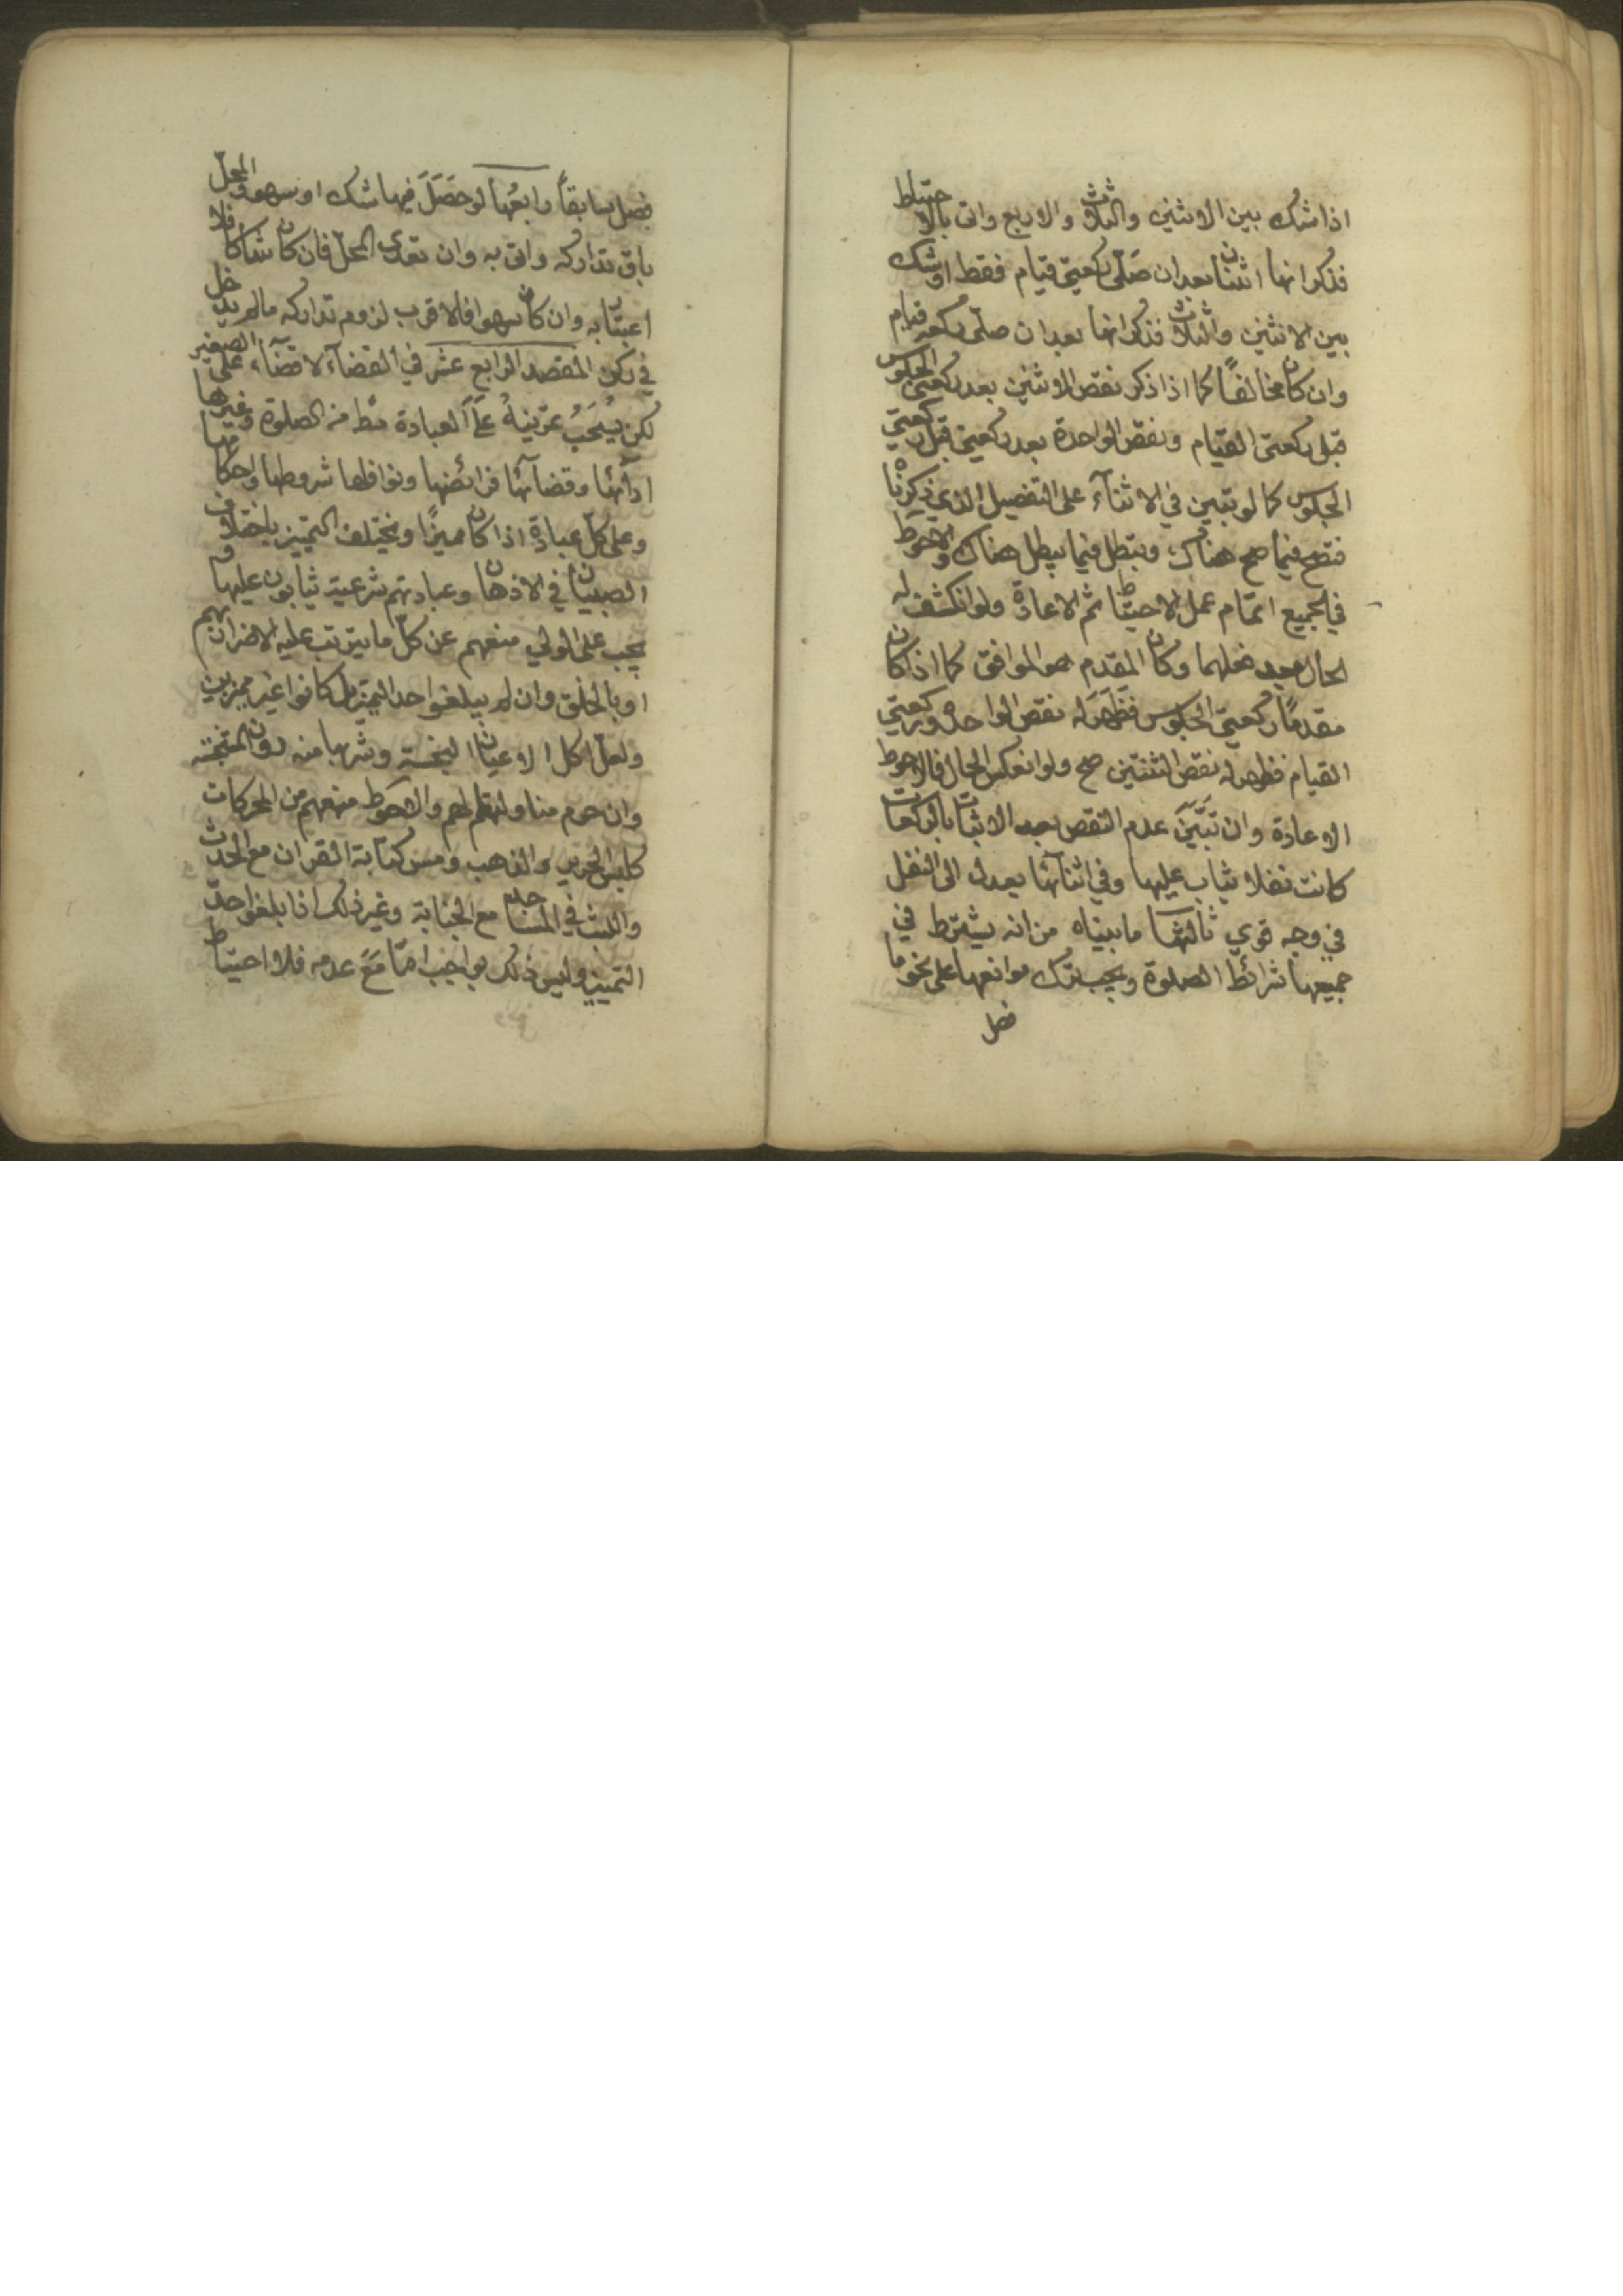 اذا شك بين الاثنين والثلاث والاربع واتى بالاحتياط
فذكر انها اثنتان بعد ان صلّى ركعتي قيام فقط او شك
بين الاثنين والثلاث فذكر انها بعد ان صلّى ركعة قيام
وان كان مخالفًا كما اذا ذكر نقص الاثنين بعد ركعتي الجلوس
قبل ركعتي القيام ونقص الواحدة بعد ركعتين قبل ركعتي
الجلوس كما لو تبين في الاثناء على التفصيل الذي ذكرنا
فتصح فيما صح هناك وتبطل فيما يبطل هناك والاحوط
في الجميع اتمام عمل الاحتياط ثم الاعادة ولو انكشف له
الحال بعد فعلهما وكان المقدم هو الموافق كما اذا كان
مقدمًا ركعتي الجلوس فظهر له نقص الواحدة وركعتي
القيام فظهر له نقص الثنتين صح ولو انعكس الحال فالاحوط
الاعادة وان تبيّن عدم النقص بعد الاتيان بالركعات
كانت نفلا يثاب عليها وفي اثنائها يعدل الى النفل
في وجه قوي ثالثها ما بيناه من انه يشترط في
جميعها شرائط الصلوة ويجب ترك موانعها على نحو ما
فصل
فصل سابقاً رابعُها لو حصَلَ فيها شك او سهو والمحلّ
باق تداركه واتى به وان تعدى المحلّ فان كان شكا فلا
اعتبار به وان كان سهوا فالاقرب لزوم تداركه مالم يدخل
في ركن المقصد الرابع عشر في القضآء لا قضآء على الصغير
لكن يُستحَبُ تمرينهُ علَى العبادة من الصلوة وغيرها
ادآئها وقضآئها فرائضها ونوافلها شروطها واحكامها
وعلى كل عبادة اذا كان مميزًا ويختلف التميز باختلاف
الصبيان في الاذهان وعبادتهم شرعية يثابون عليها و
يجب على الولي منعهم عن كلّ ما يترتب عليه الاضرار بهم
او بالخلق وان لم يبلغوا حد التميز بل كانوا غير مميزين
ولعلّ اكل الاعيان النجسة وشربها منه دون المتنجسة
وان حرم مناولتها لهم والاحوط منعهم من المحركات
كلبس الحرير والذهب ومس كتابة القران مع الحدث
واللبث في المساجد مع الجنابة وغير ذلك اذا بلغوا حدّ
التمييز وليس ذلك بواجب امّا مَعَ عدمه فلا احتياط